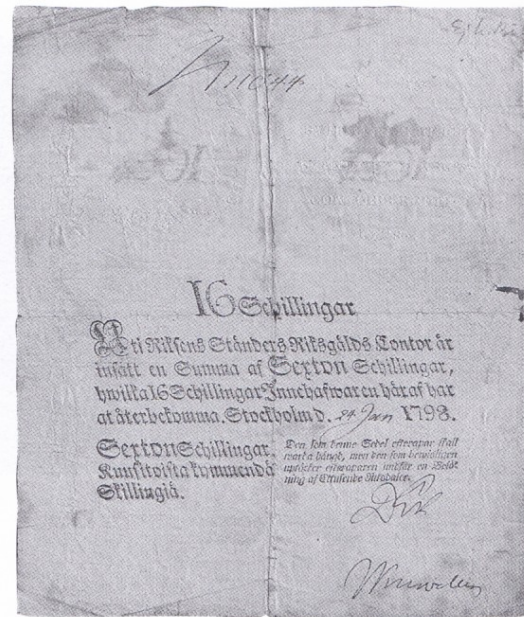 11044
16 Schillingar
Uti Riksens Ständers Riksgälds Contor är
insatt en Summa af Sexton Schillingar,
hwilka 16 Schillingar Innehafwaren häraf har
at återbekomma. Stockholm d. 24 Jan 1798.
Sexton Schillingar.
Kunsitoista kymmendä
Skillingiä.
Den som denne Sedel efterapar skall
warda hängd, men den som bewisligen
uptäcker efteraparen undfår en Belö-
ning af Ettusende Riksdaler.